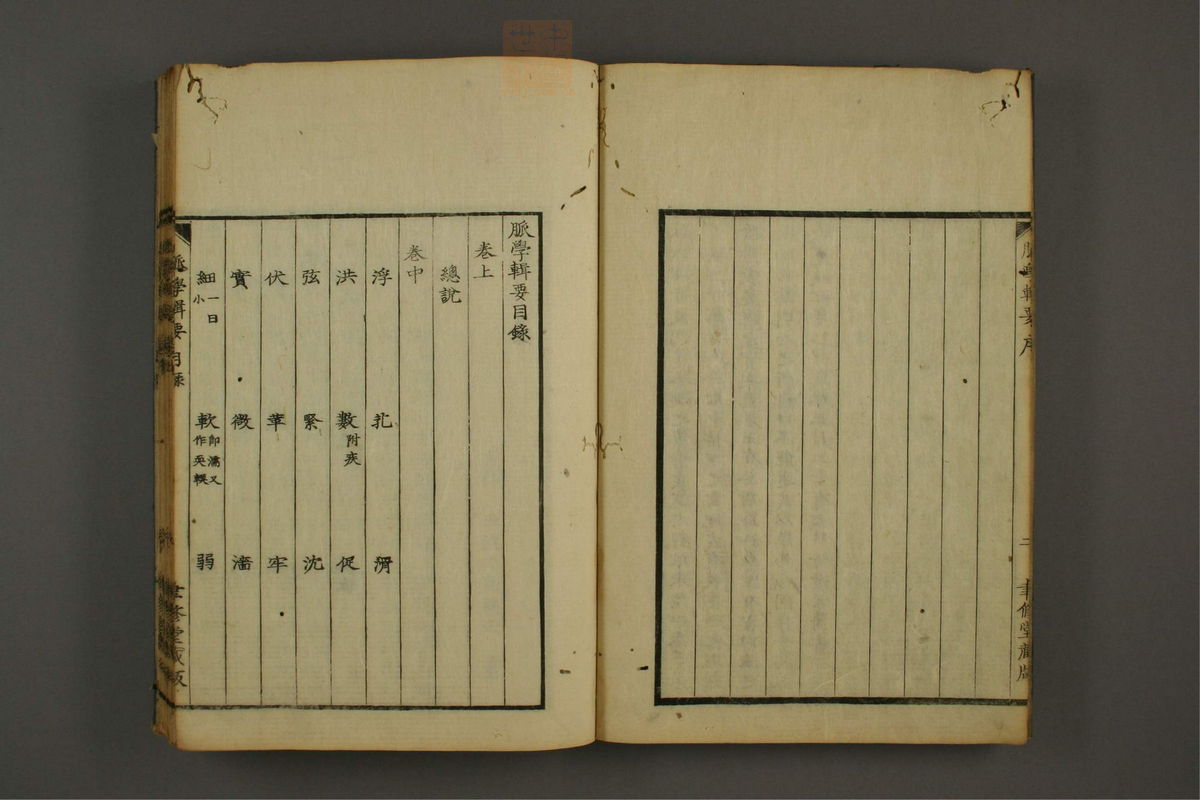 脈學輯要序
二
聿修堂藏版
脈學輯要目錄
卷上
總說
卷中
浮 芤 滑
洪 數附疾 促
弦 緊 沈
伏 革 牢
實 微 濇
細一曰小 軟即濡又作耎 弱
脈學輯要目錄
聿修堂藏版